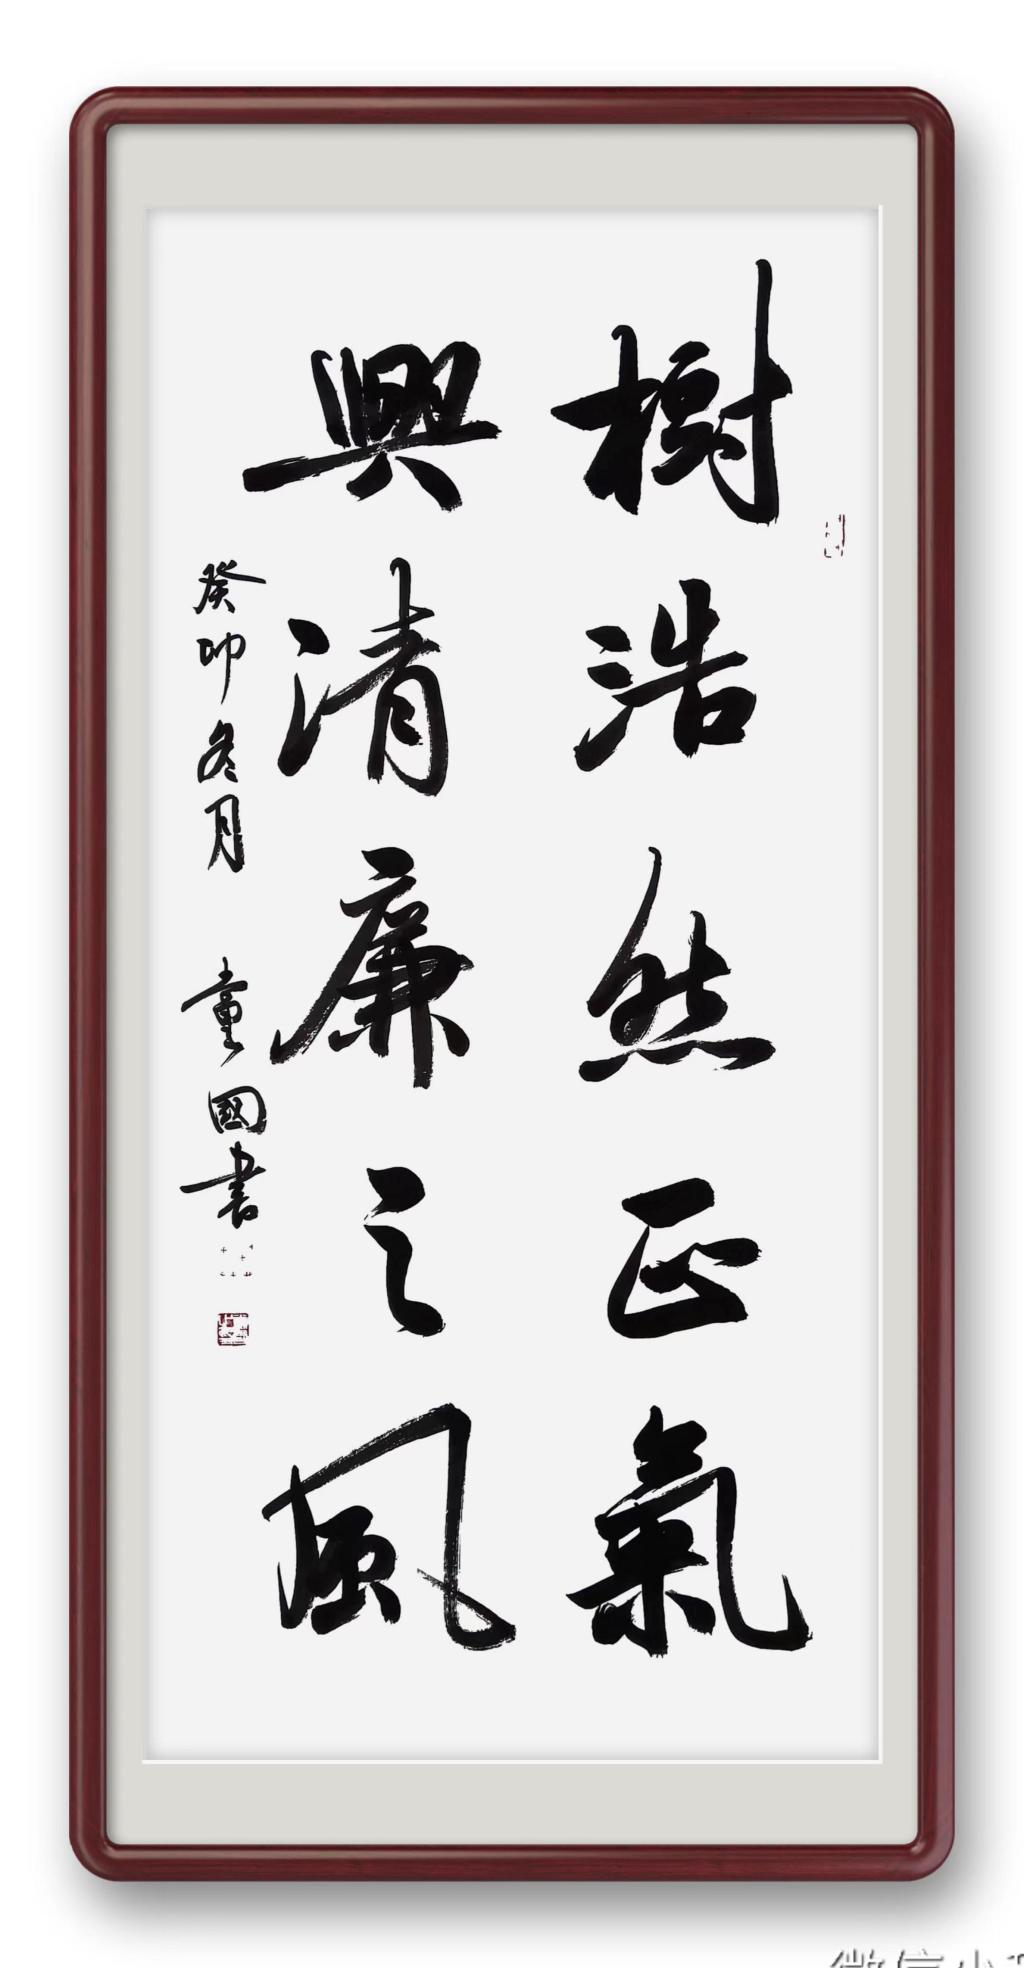 樹浩然正氣
興清廉之風
癸卯冬月 童國書